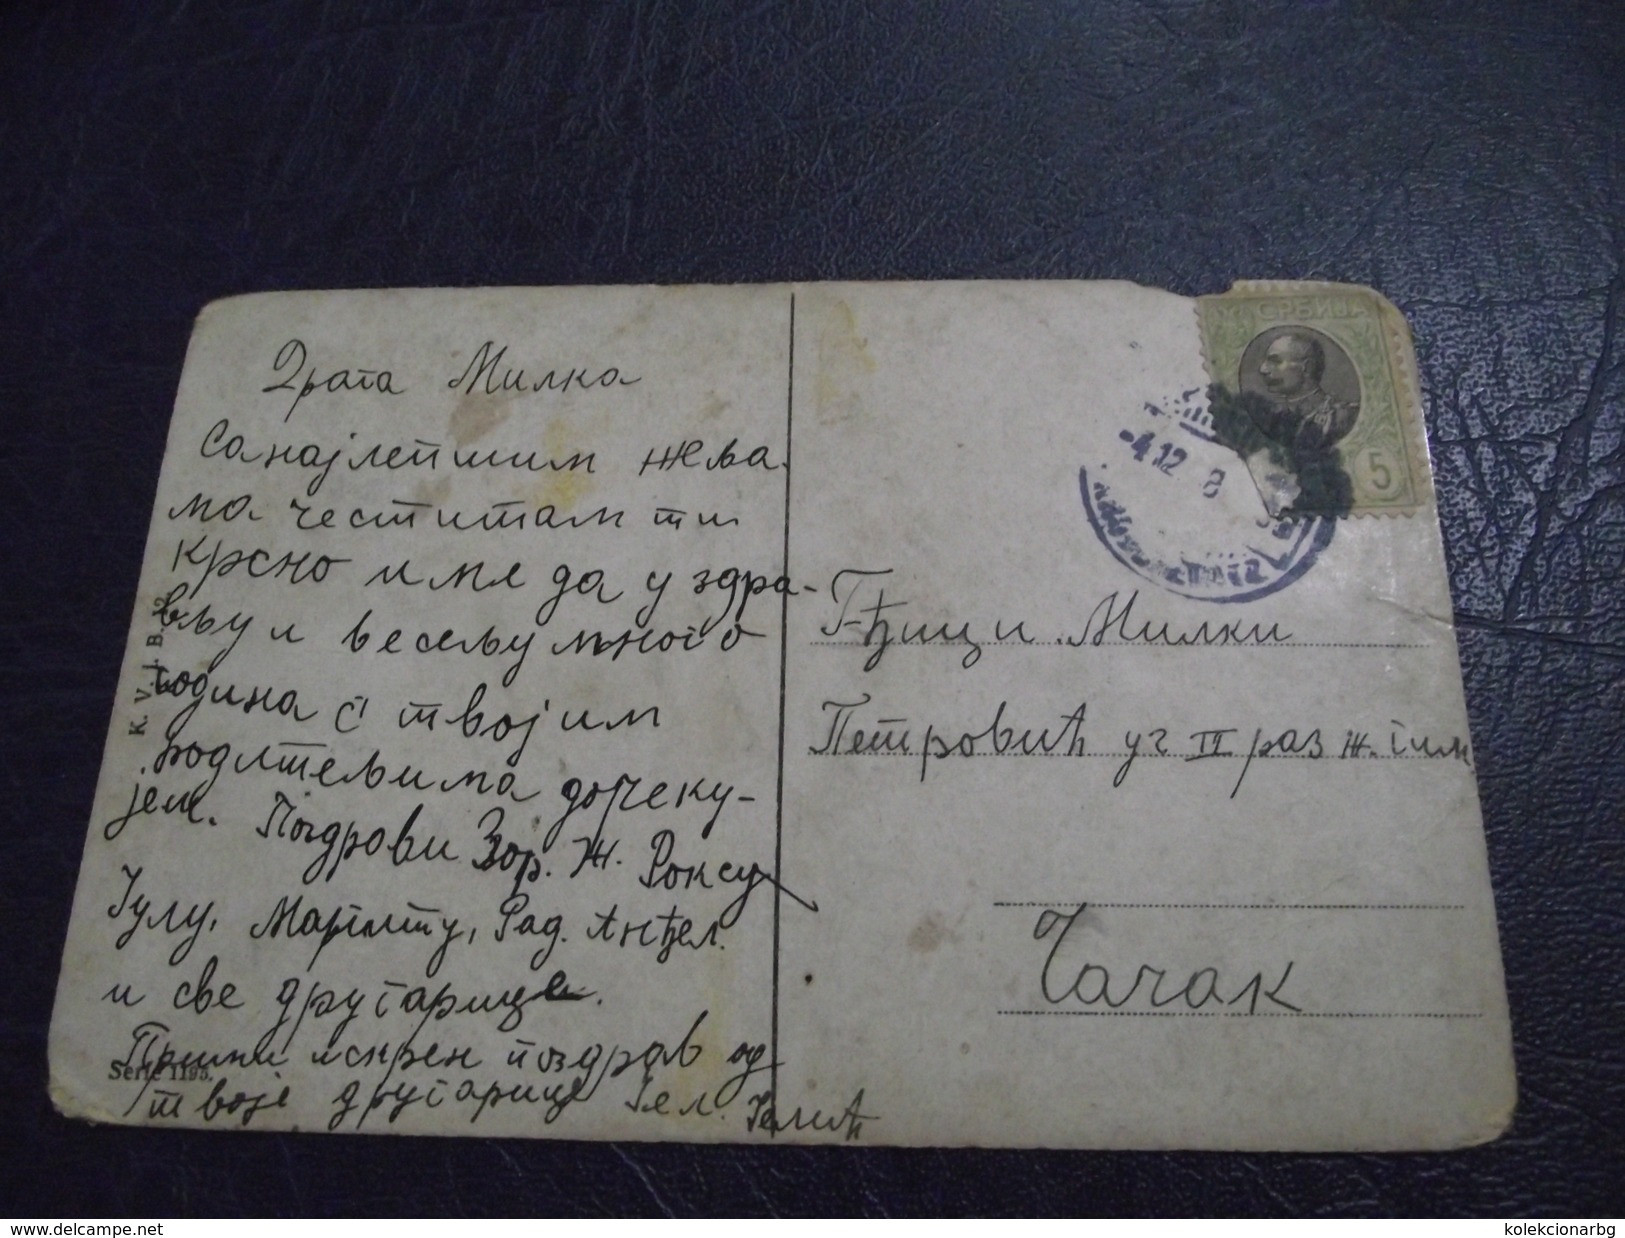 Драга Милка
Са најлепшим жеља-
ма честитам ти
крсно име да у здра-
вљу и весељу много
година с твојим
родитељима дочеку-
јем. Поздрави Зор. Ж. Роксу
Јулу, Маргиту, Рад. Анђел.
и све другарице.
Прими искрен поздрав од
твоје другарице Јел. Јелић
K. V. i. B. 12
Serie 1195.
СРБИЈА
5
-4.12 8
Г-ђици Милки
Петровић уч II раз ж. гим
Чачак
delcampe.net
kolekcionarbg